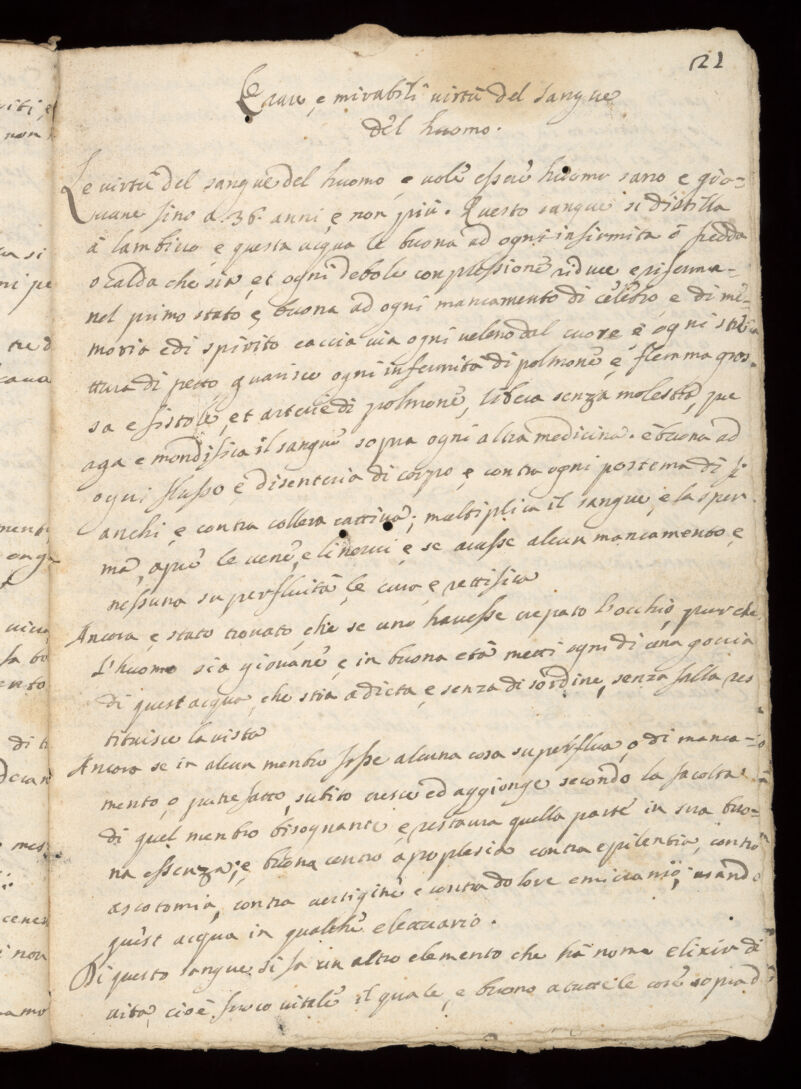 121
Le rare, e mirabili virtù del sangue
del huomo.
Le virtù del sangue del huomo, e vole essere huomo sano e gio=
vane sino a 36. anni, e non più. Questo sangue si distilla
à lambico, e questa acqua le buona ad ogni infirmita ò fredda
o calda che sia, et ogni debole conplessione riduce, e riferma=
nel primo stato e, buona ad ogni mancamento di celebro, e di me=
moria e di spirito caccia via ogni veleno dal cuore, e ogni stre
ttura di petto guarisce ogni infermità di polmone, e, flemma gros
sa e fistole, et arterie di polmone, libera senza molestia, pur
aga e mondifica il sangue sopra ogni altra medicina. è buona ad
ogni flusso e, disenteria di corpo, e contra ogni postema di fi
anchi, e contra collera cattiva; multiplica il sangue, e la sper
ma, apre le vene, e li nervi, e se avesse alcun mancamento, e
nessuna superfluità, le cura, e, rettifica
Ancora, e stato trovato, che se uno havesse crepato l'occhio, pur che
l'huomo sia giovane, e in buona età metti ogni di una goccia
di quest acqua, che stia a dieta, e senza disordine, senza falla res
tituisce la vista
Ancora se in alcun menbro fosse alcuna cosa superflua, o di manca=
mento, o putrefatto, subito cresce ed aggionge secondo la facolta
di quel menbro bisognante, e restaura quella parte in sua buo=
na essenza; e buona contro apoplesia contra epilentia, contro
ascotomia, contra vertigine e contra dolore emicranio, usando
quest acqua in qualche elettuario.
Di questo sangue si fa un altro elemento che hà nome elixir di
vita, cioè fuoco vitale il quale, e buono a tutte le cose sopra d